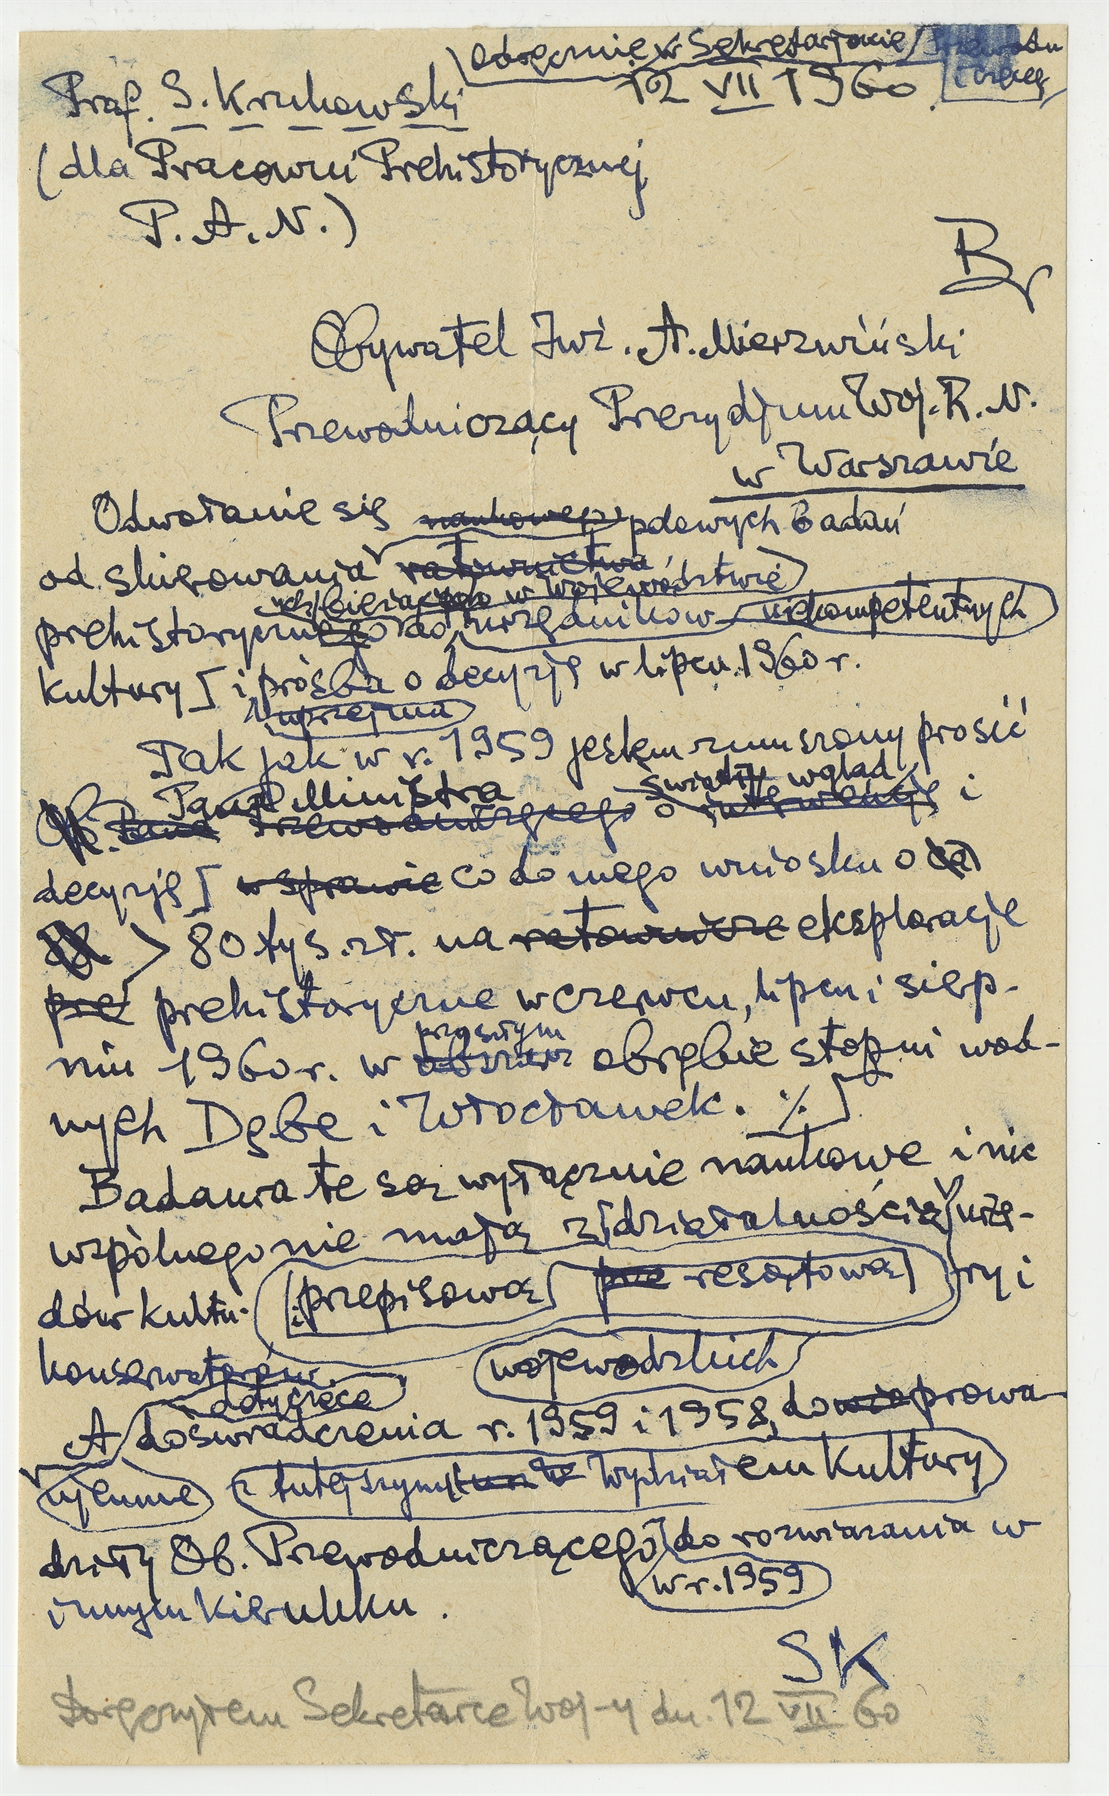 odręcznie w Sekretariacie
Prof. S. Krukowski 12 VII 1960
(dla Pracowni Prehistorycznej
P.A.N.)
Br
Obywatel Inż. A. Mierzwiński
Przewodniczący Prezydjum Woj. R. N.
w Warszawie
Odwołanie się naukowego polowych Badań
od skierowania ratownictwa
w województwie
prehistorycznego do urzędników niekompetentnych
kultury i prośba o decyzję w lipcu 1960 r.
uprzejma
Tak jak w r. 1959 jestem zmuszony prosić
Pana Ministra świadły wgląd
Ob. Pana Przewodniczącego o interwencję i
decyzję w sprawie co do mego wniosku o
80 tys. zł. na ratownicze eksploracje
pre prehistoryczne w czerwcu, lipcu i sierp-
przyszłym
niu 1960 r. w obszarz obrębie stopni wod-
nych Dębe i Włocławek. ./.
Badania te są wyłącznie naukowe i nic
wspólnego nie mają z działalnością urzę-
dów kultu- i przepisową pre resortową ry i
konserwatorów wojewódzkich
dotyczące
A doświadczenia r. 1959 i 1958, doprowa-
ujemne z tutejszym Wydziałem Kultury
dziły Ob. Przewodniczącego do rozwiazania w
w r. 1959
innym kierunku.
SK
Doręczyłem Sekretarce Woj-y dn. 12 VII 60